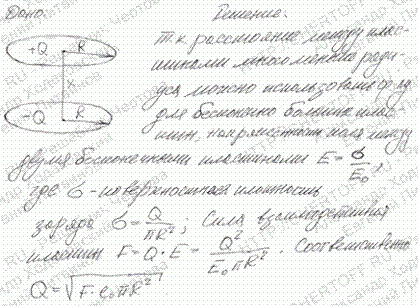 Дано: Решение.
+Q R
Т.к расстояние между плас-
тинами много меньше ради-
x
уса можно использовать ф-лу
-Q R
для бесконечно больших плас-
тин, напряженность поля между
двумя бесконечными пластинами E = σ/E₀,
где σ - поверхностная плотность
заряда σ = Q/πR²; Сила взаимодействия
пластин F = Q·E = Q²/E₀πR². Соответственно
Q = √F·ε₀πR²